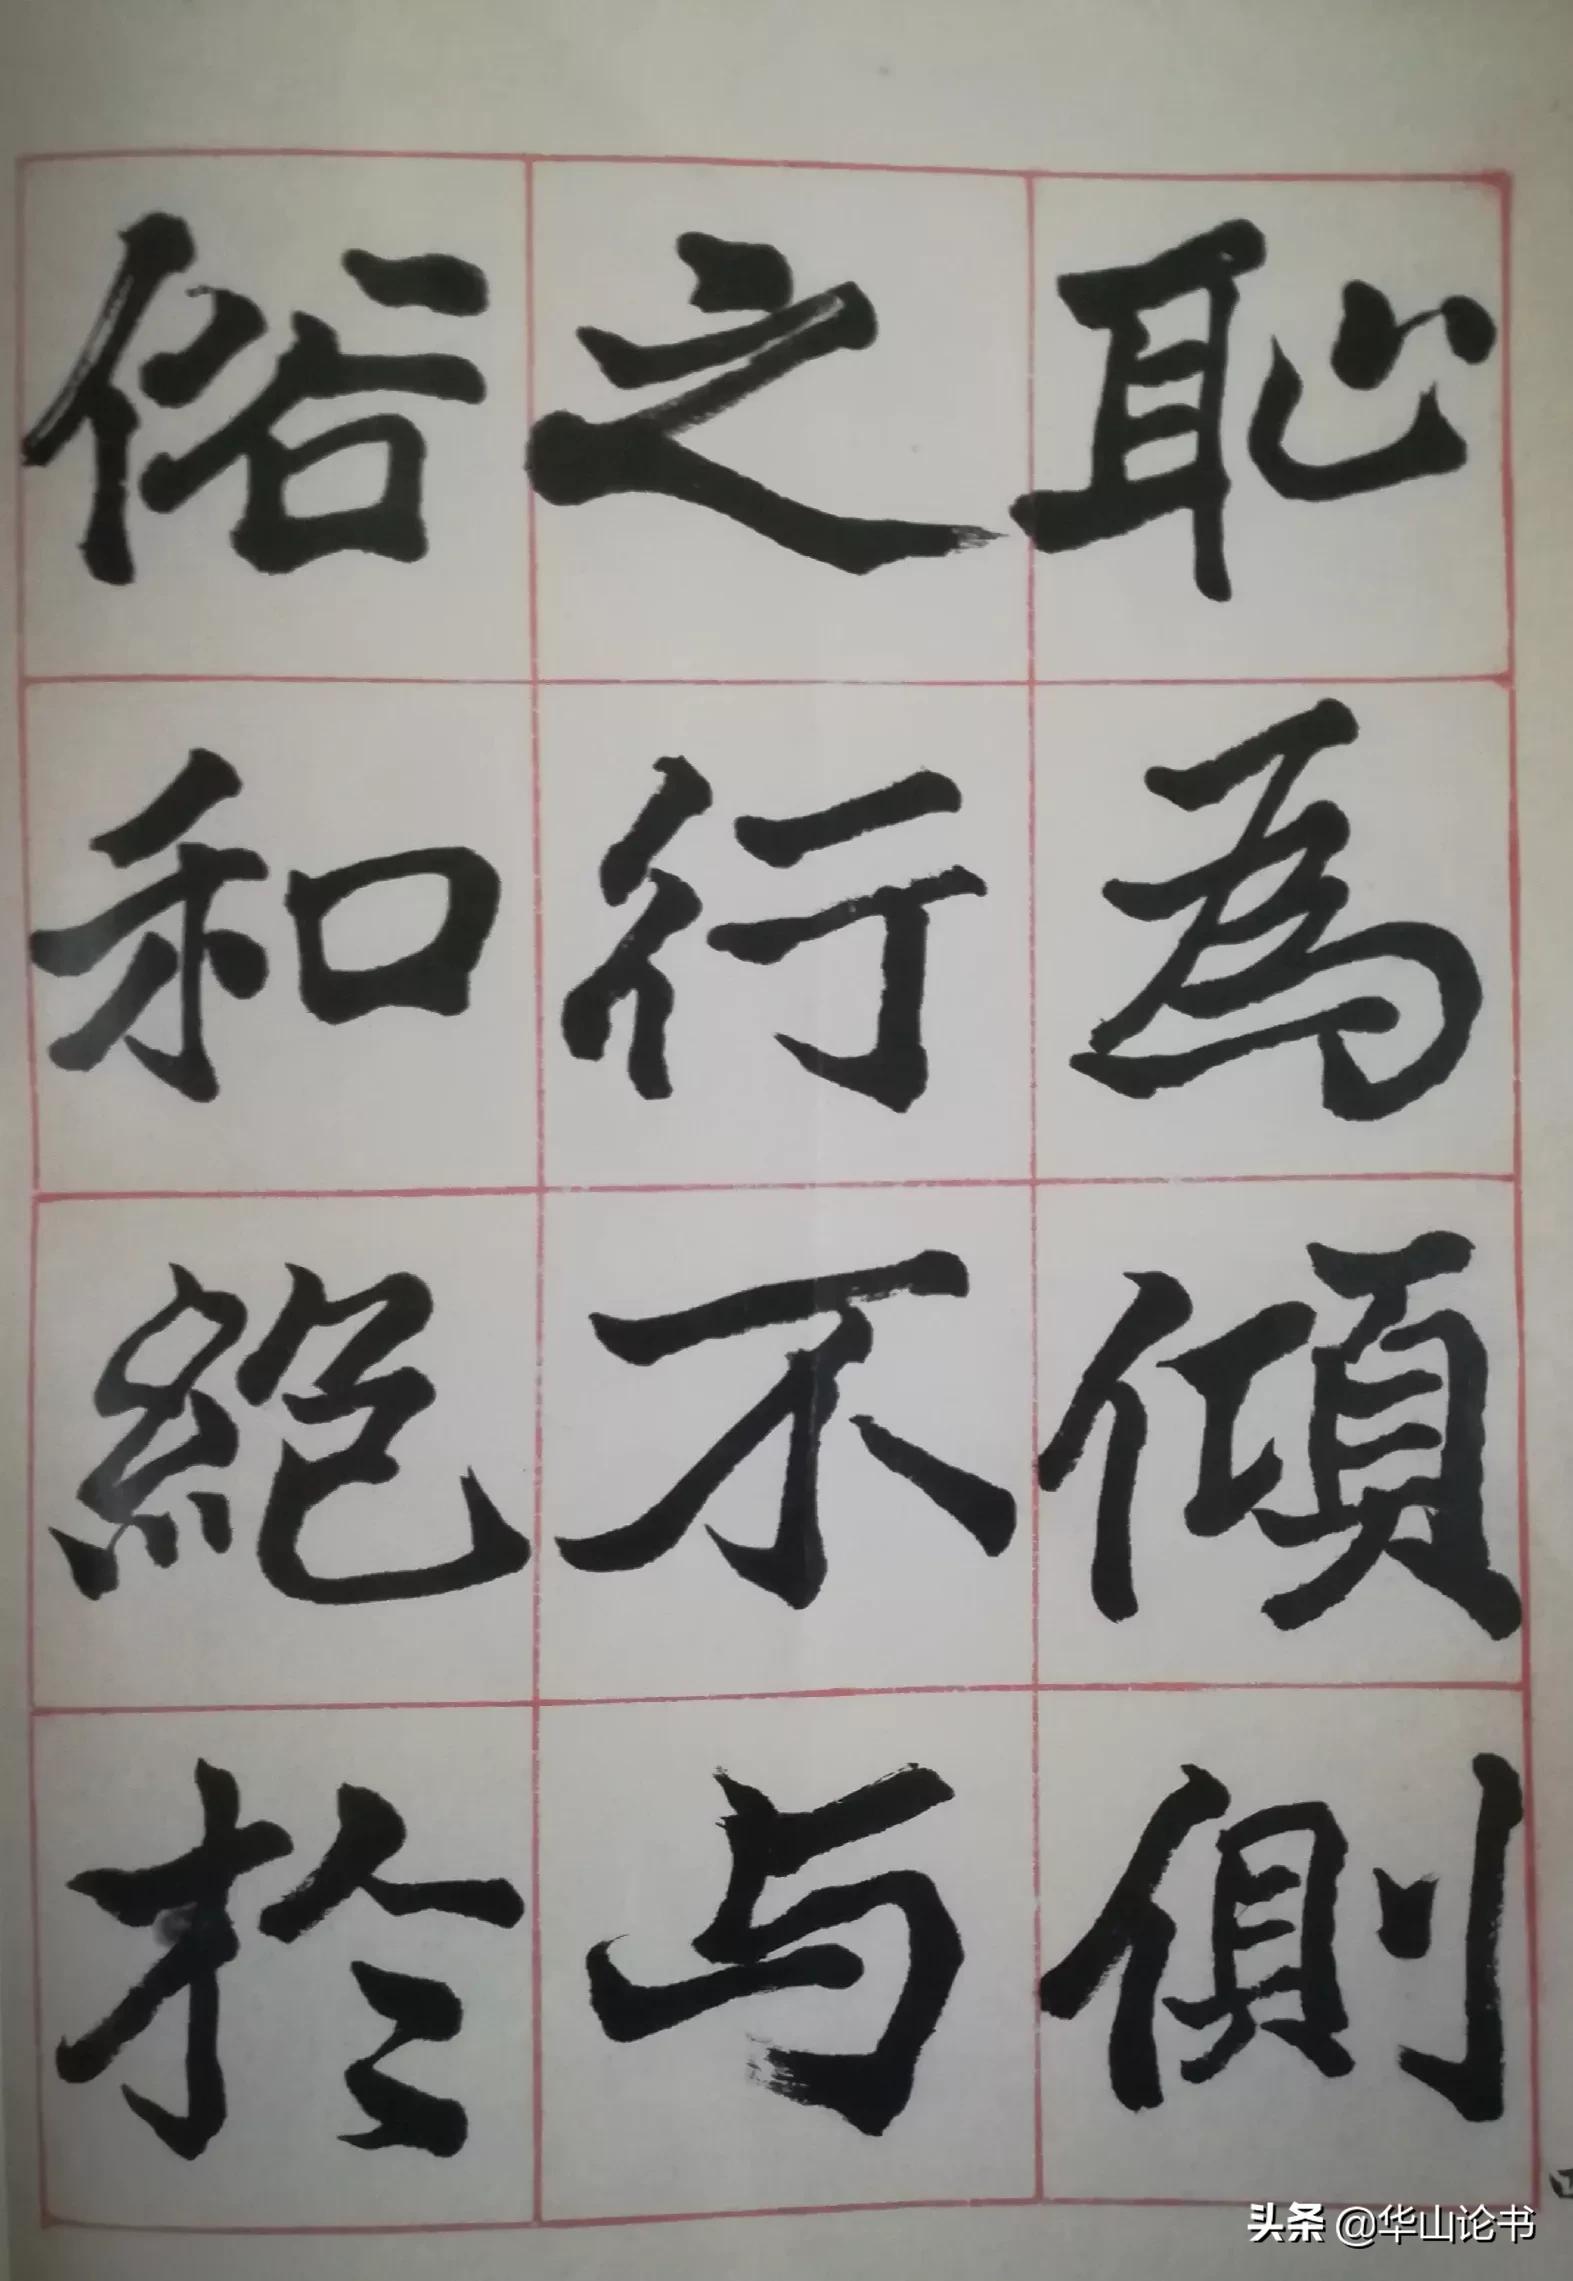 恥為傾側
之行不与
俗和絕於
头条 @华山论书